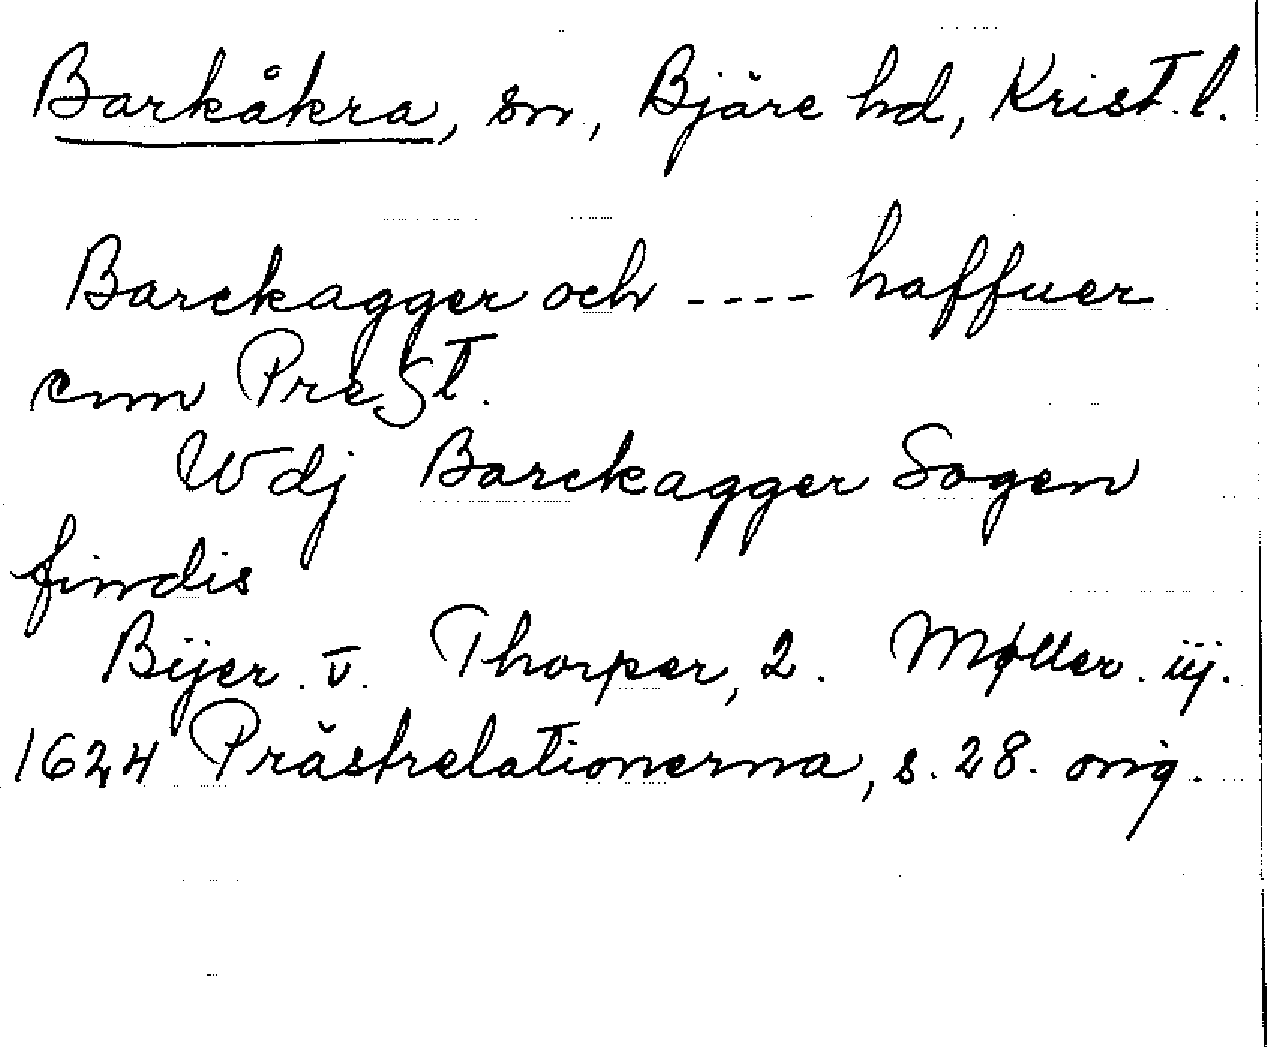 Barkåkra, sn, Bjäre hd, Krist. l.
Barckagger och ---- haffuer
enn PreSt.
Wdj Barckagger Sogen
findis
Bijer. v. Thorper, 2. Møller. iij.
1624 Prästrelationerna, s. 28. orig.